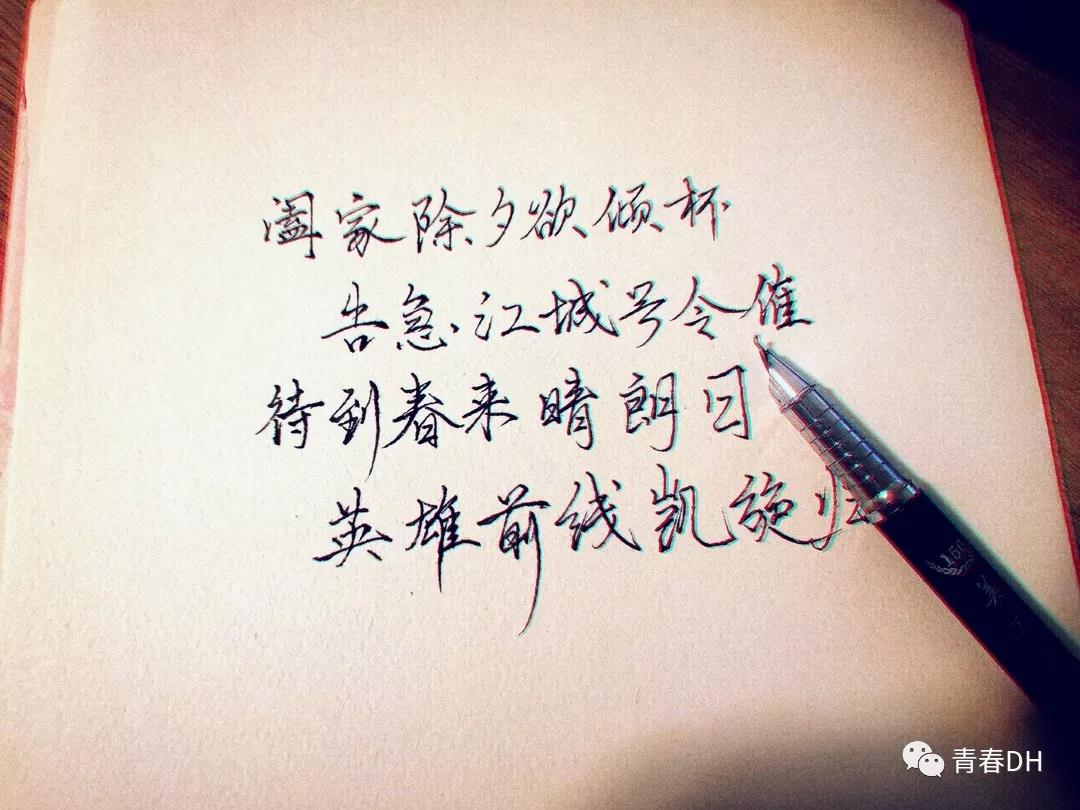 阖家除夕欲倾杯
告急江城号令催
待到春来晴朗日
英雄前线凯旋归
166
青春DH